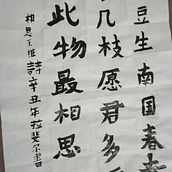 豆生南国春来
几枝愿君多
此物最相思
相思王维詩辛丑年菈斐尔書